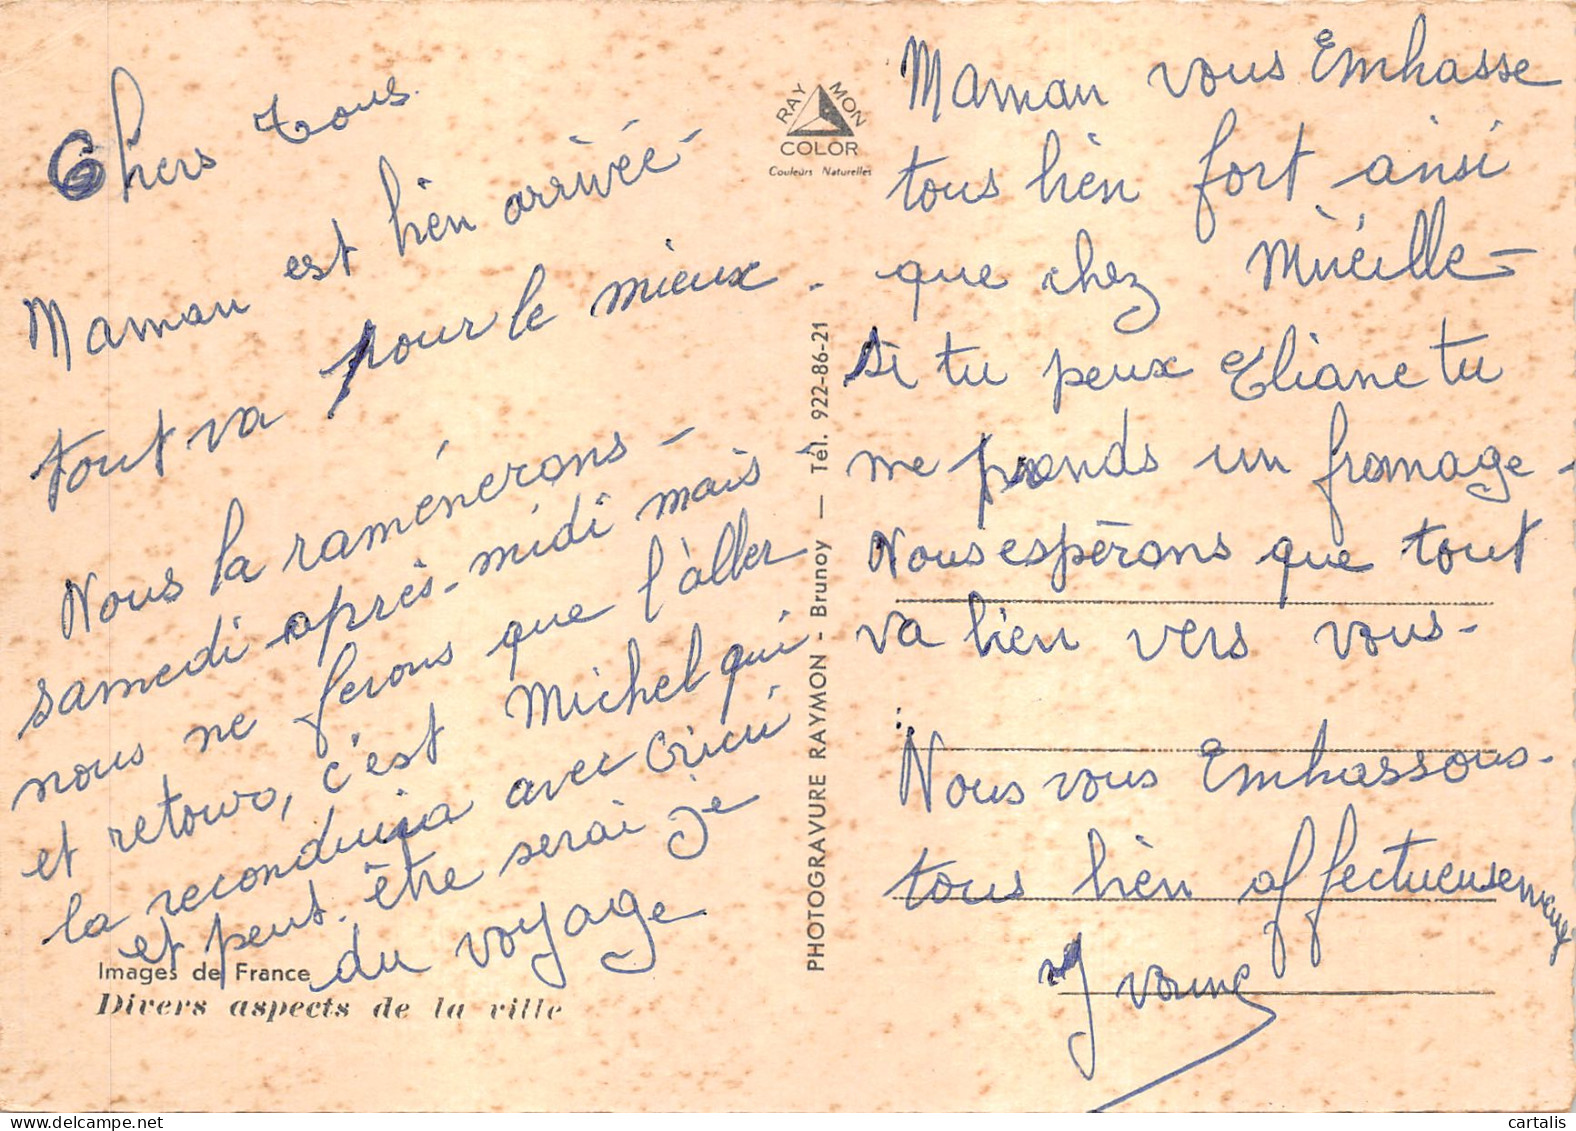 Chers Tous.
Maman est bien arrivée -
tout va pour le mieux.
Nous la ramènerons -
samedi après-midi mais
nous ne ferons que l'aller
et retour, c'est Michel qui
la reconduira avec
et peut-être serai je
du voyage
Images de France
Divers aspects de la ville
RAYMON
COLOR
Couleurs Naturelles
PHOTOGRAVURE RAYMON - Brunoy — Tél. 922-86-21
Maman vous Embrasse
tous bien fort ainsi
que chez Mireille -
si tu peux Eliane tu
me prends un fromage -
Nous espérons que tout
va bien vers vous -
Nous vous Embrassons -
tous bien affectueusement
Yvonne
cartalis